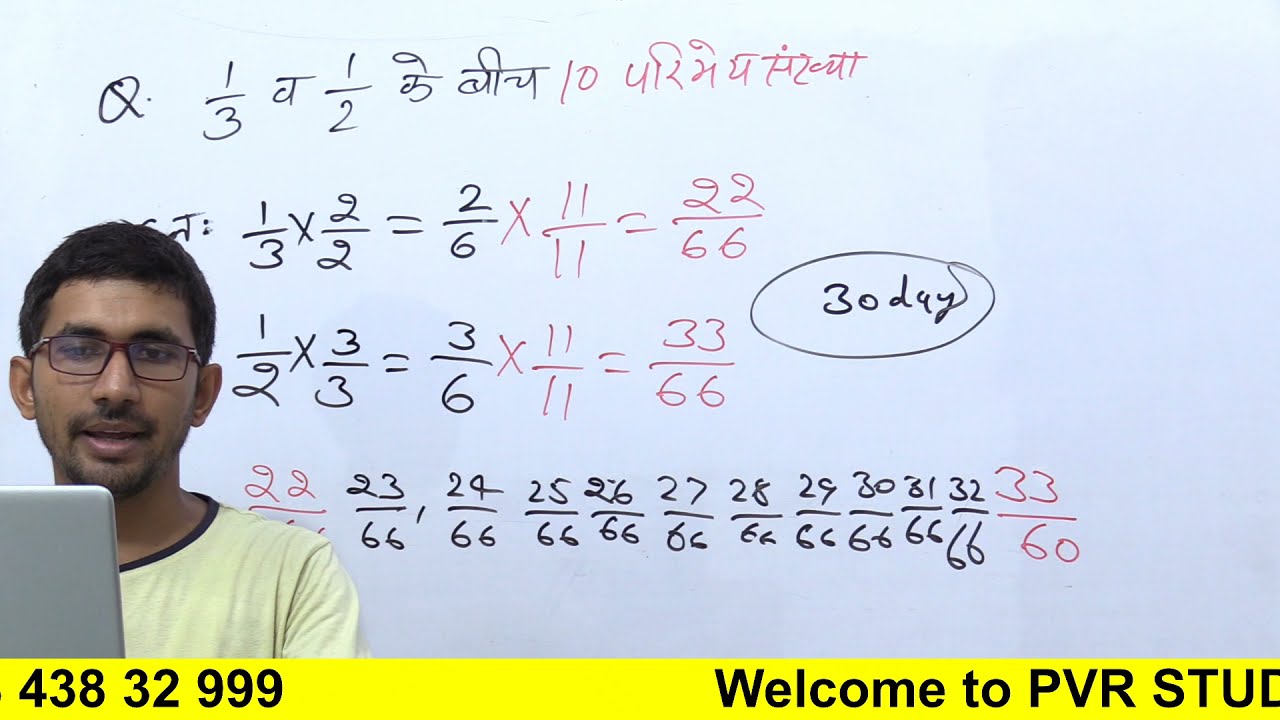 Q. 1/3 व 1/2 के बीच 10 परिमेय संख्या
1/3 × 2/2 = 2/6 × 11/11 = 22/66
1/2 × 3/3 = 3/6 × 11/11 = 33/66
30 day
22/66 23/66, 24/66 25/66 26/66 27/66 28/66 29/66 30/66 31/66 32/66 33/60
438 32 999
Welcome to PVR STUD